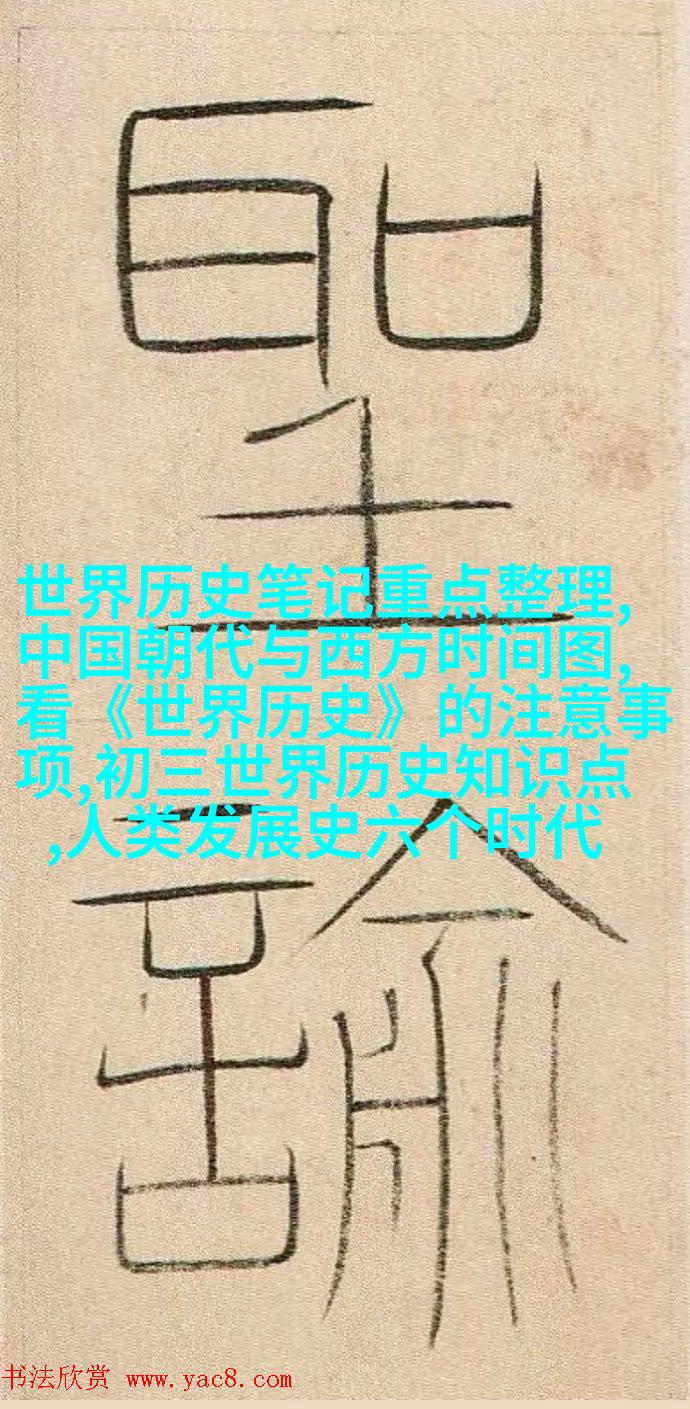 聖
諭
世界历史笔记重点整理,
中国朝代与西方时间图,
看《世界历史》的注意事
项,初三世界历史知识点
,人类发展史六个时代
书法欣赏 www.yac8.com